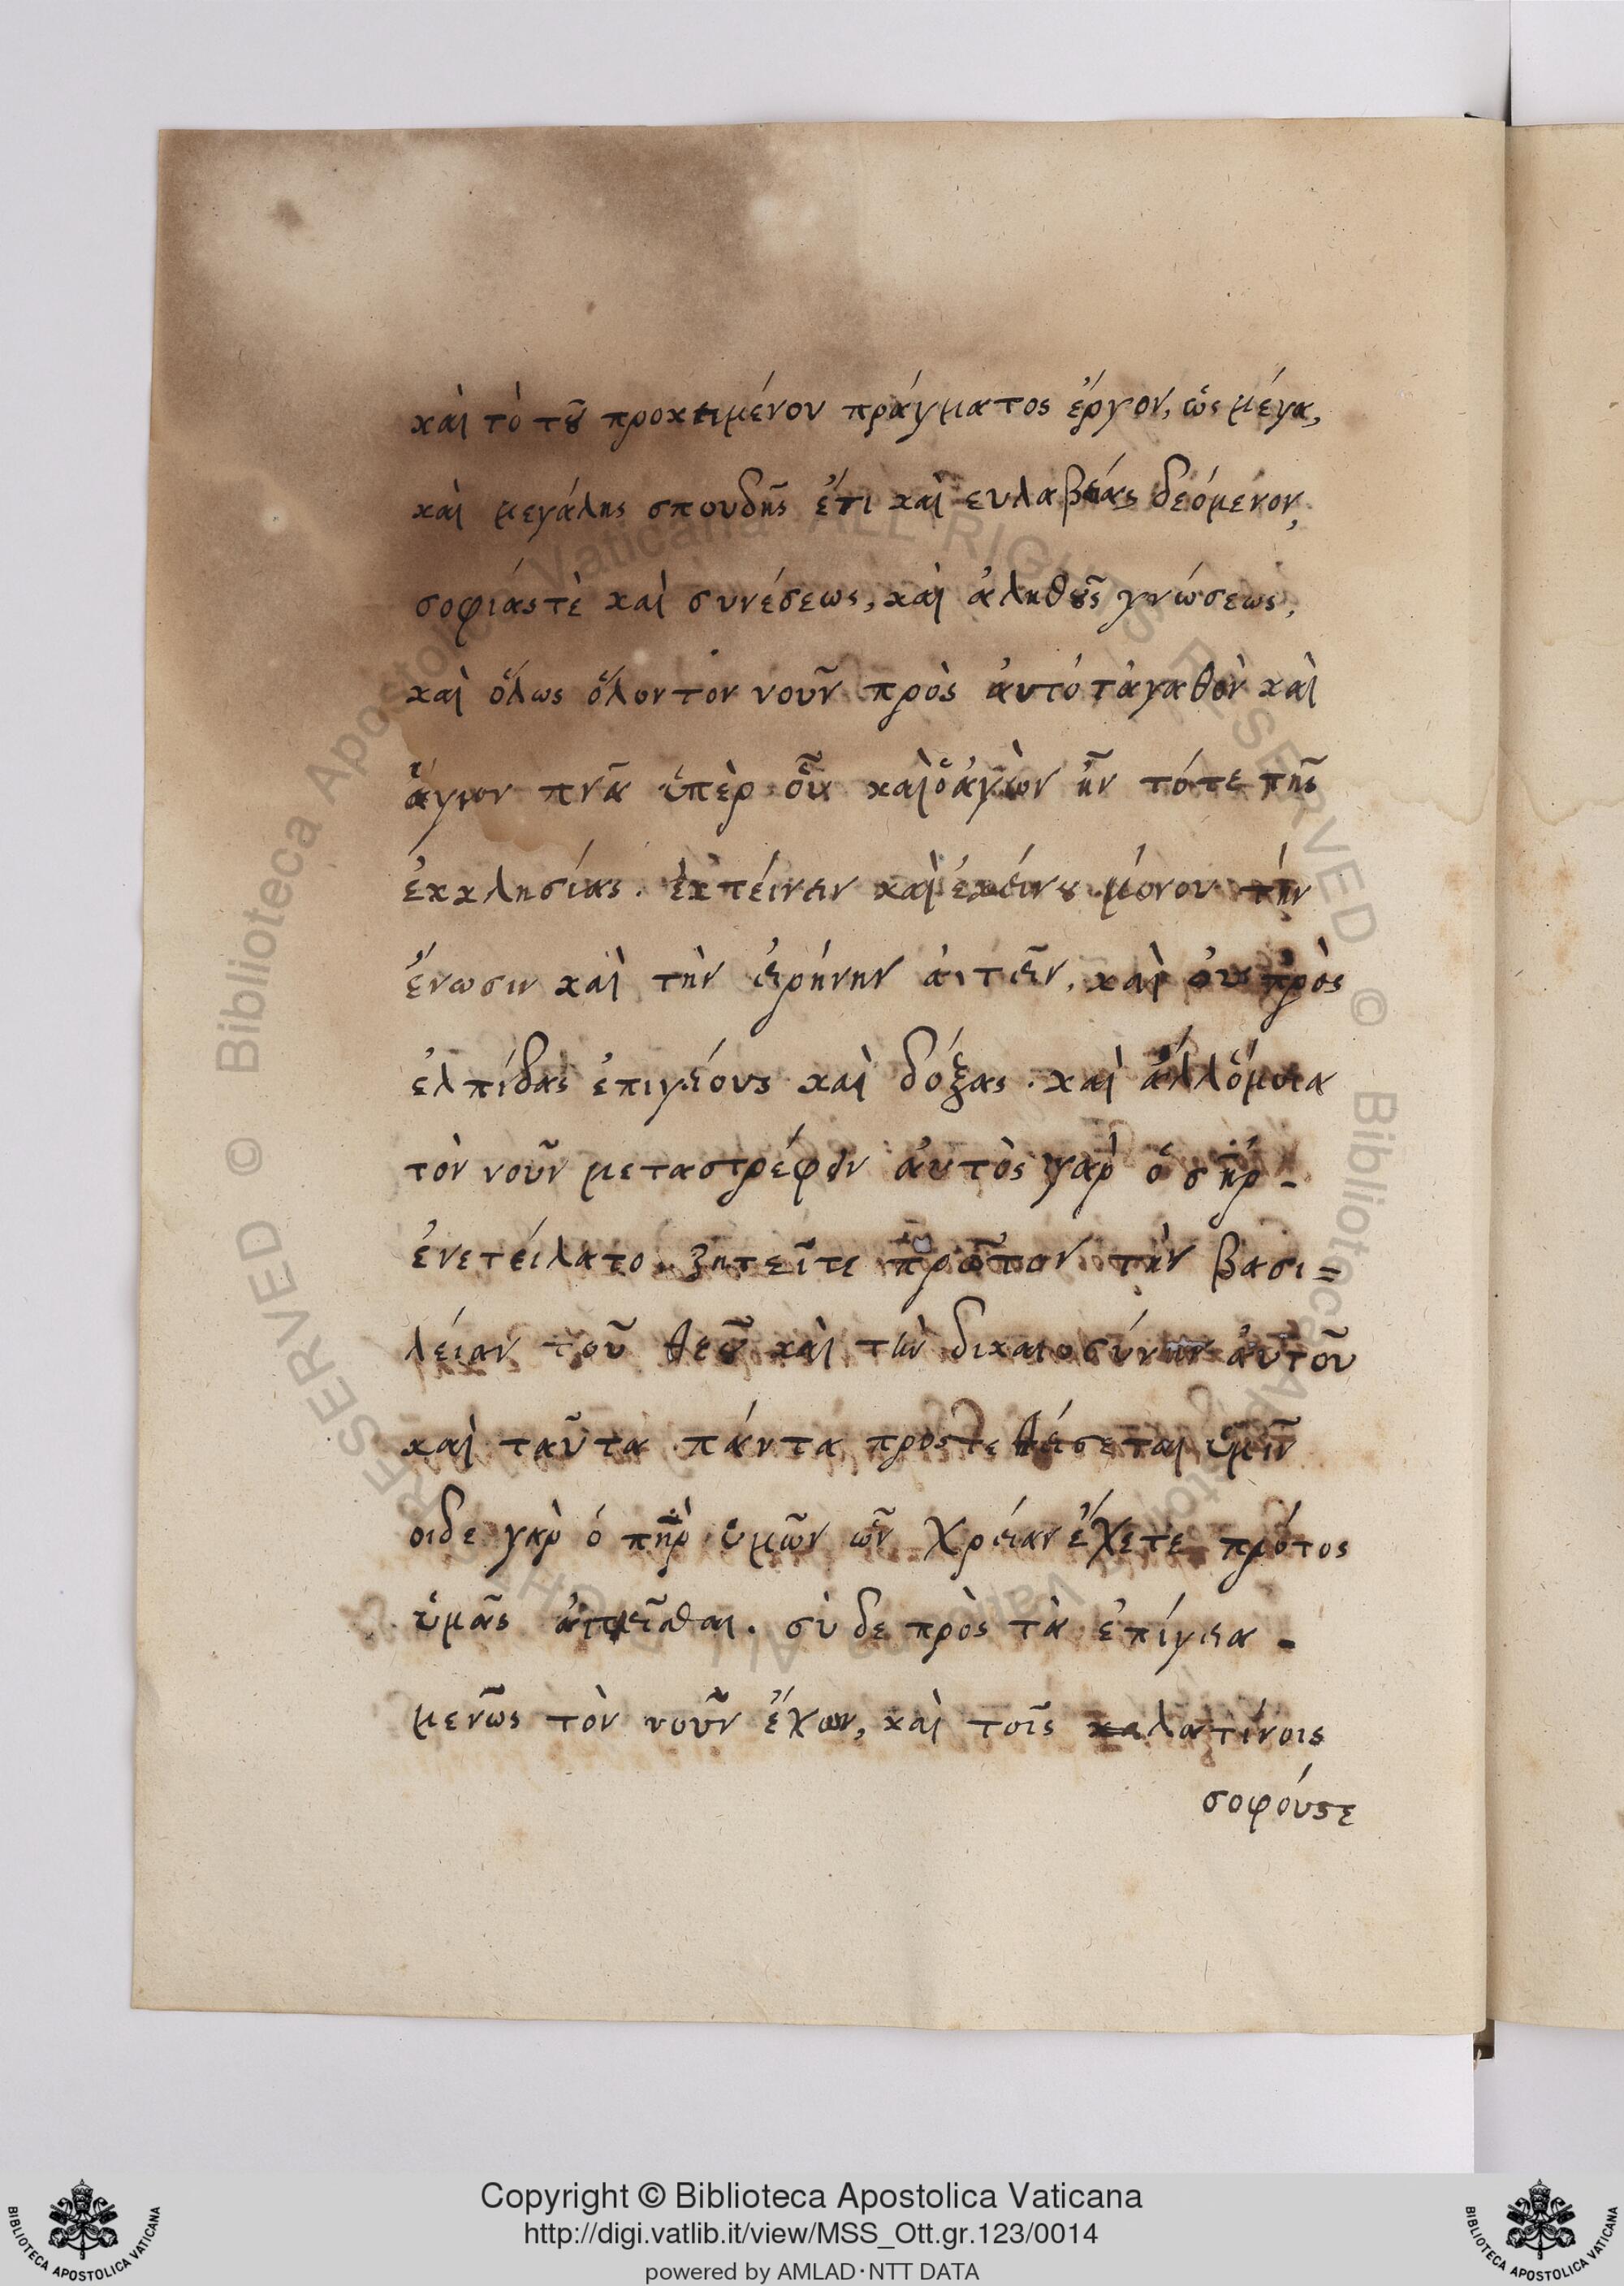 καὶ τὸ τȣ͂ προκειμένου πράγματος ἔργον, ὡς μέγα,
καὶ μεγάλης σπουδῆς ἔτι καὶ ευλαβείας δεόμενον,
σοφίαςτὲ καὶ συνέσεως, καὶ ἀληθȣ͂ς γνώσεως,
καὶ ὅλως ὅλοντον νοῦν πρὸς ἀυτό τἀγαθὸν καὶ
ἅγιον πνᾶ ὑπὲρ οὗ καὶὁἀγὼν ἦν τότε τῆς
ἐκκλησίας. ἐκτείνειν καὶ ἐκείνȣ μόνου τήν
ἕνωσιν καὶ τὴν εἰρήνην ἀιτεῖν, καὶ ὀυ πρὸς
ἐλπίδας ἐπιγείους καὶ δόξας. καὶ ἀλλόμοια
τὸν νοῦν μεταστρέφειν ἀυτὸς γαρ ὁ σηρ -
ἐνετείλατο. ζητεῖτε πρῶτον τὴν βασι=
λείαν τοῦ θεȣ͂ καὶ τὴν δικαιοσύνην ἀυτοῦ
καὶ ταῦτα πάντα προςτεθήσεται ὑμῖν
οιδε γαρ ὁ πηρ ὑμῶν ὧν χρείαν ἔχετε πρότος
ὑμᾶς ἀιτεῖσθαι. σὺ δε πρὸς τὰ ἐπίγεια -
μενῶς τὸν νοῦν ἔχων, καὶ τοῖς λατίνοις
σοφούςε
Copyright © Biblioteca Apostolica Vaticana
http://digi.vatlib.it/view/MSS_Ott.gr.123/0014
powered by AMLAD·NTT DATA
BIBLIOTECA APOSTOLICA VATICANA
BIBLIOTECA APOSTOLICA VATICANA